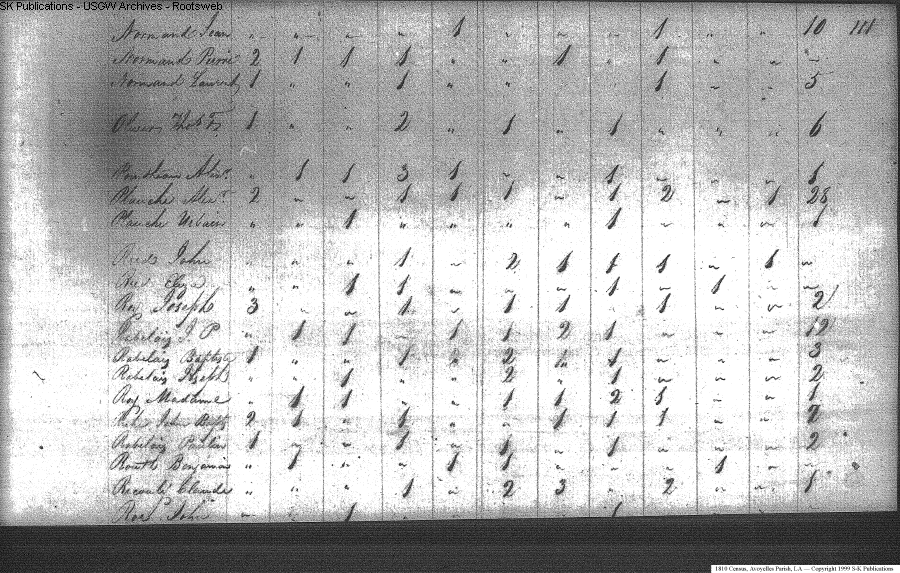 SK Publications - USGW Archives - Rootsweb
Normand Jean " " " " 1 " " " 1 " " 10 111
Normand Pierre 2 1 1 1 " " 1 " 1 " " "
Normand Laurent 1 " " 1 " " " " 1 " " 5
1 " " 2 " 1 " 1 " " " 6
" 1 1 3 1 " " 1 " " " 1
Planche 2 " " 1 1 1 " 1 2 " 1 28
Planche Urbain " " 1 " " " " 1 " " " 1
John " " " 1 " 2 1 1 1 " 1 "
Eliza " " 1 1 " " " 1 " 1 " "
Roy Joseph 3 " " 1 " 1 1 " 1 " " 2
Rabelais J. P " 1 1 " 1 1 2 1 " " " 12
Rabelais Baptiste 1 " " 1 " 2 " 1 " " " 3
Rabelais Joseph " " 1 " " 2 " 1 " " " 2
Roy Madame " 1 1 " " 1 1 2 5 " " 1
John 2 1 " 1 " " 1 1 1 " "
Rabelais Paulin 1 " " 1 " 1 " 1 " " " 2
Routh Benjamin " 1 " " 1 1 " " " 1 "
Claude " " " 1 " 2 3 " 2 " " 1
John 1 1
1810 Census, Avoyelles Parish, LA — Copyright 1999 S-K Publications